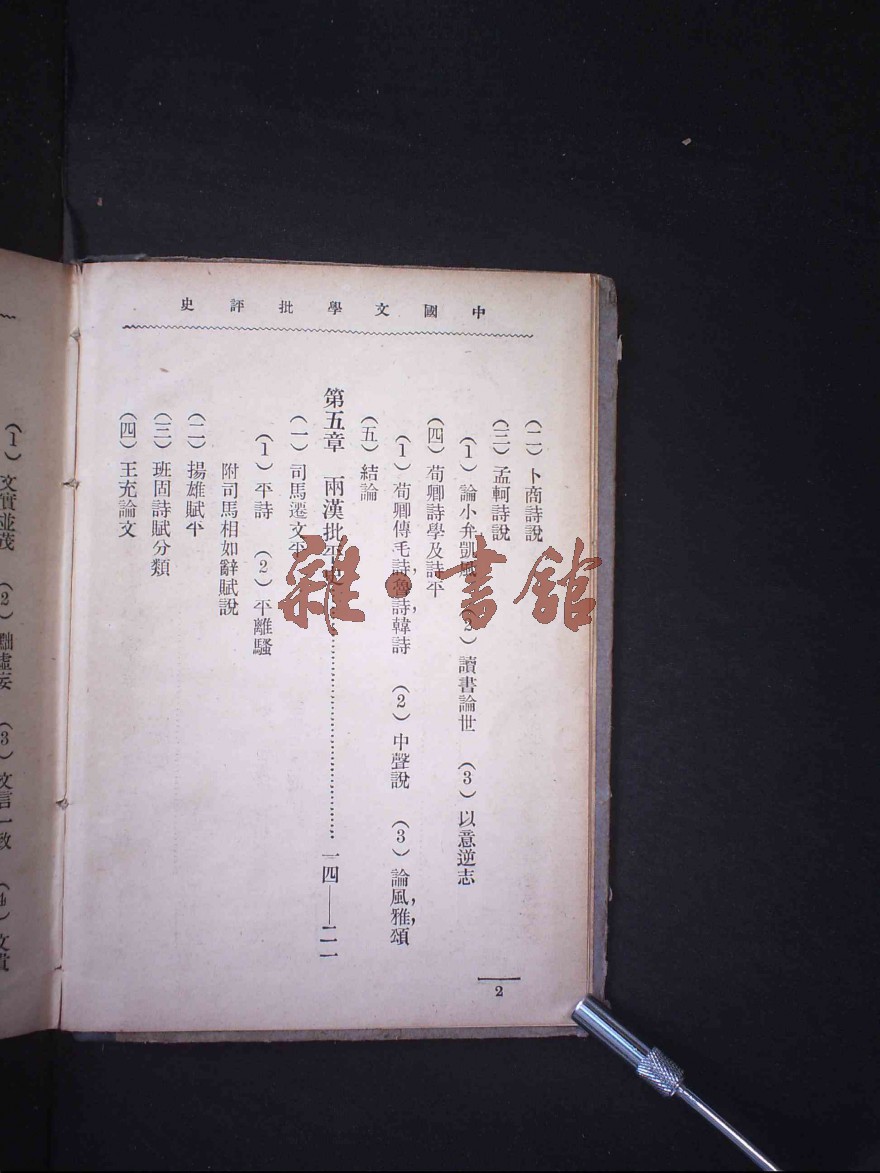 中國文學批評史
(二) 卜商詩說
(三) 孟軻詩說
(1) 論小弁凱風 (2) 讀書論世 (3) 以意逆志
(四) 荀卿詩學及詩平
(1) 荀卿傳毛詩,魯詩,韓詩 (2) 中聲說 (3) 論風,雅,頌
(五) 結論
第五章 兩漢批平史……………………一四——二一
(一) 司馬遷文平
(1) 平詩 (2) 平離騷
附司馬相如辭賦說
(二) 揚雄賦平
(三) 班固詩賦分類
(四) 王充論文
2
(1) 文質並茂 (2) 黜虛妄 (3) 文言一致 (4) 文貴
雜·書館